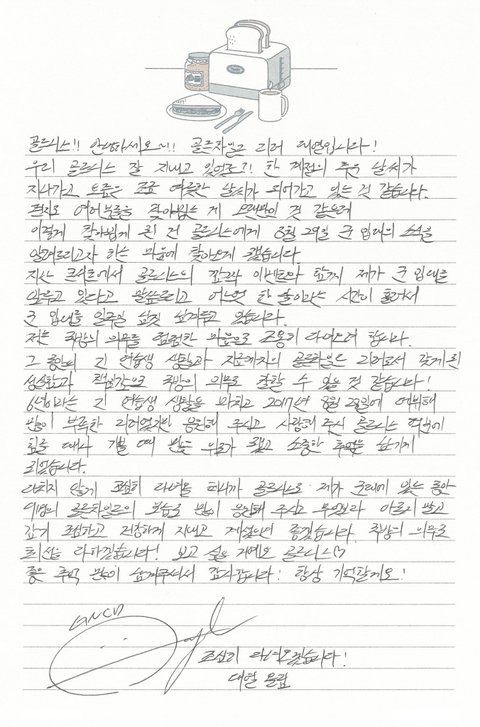 골드니스!! 안녕하세요~!! 골든차일드 리더 대열입니다!
우리 골드니스 잘 지내고 있었죠?! 한 계절의 추운 날씨가
지나가고 요즘은 조금 날씨가 되어가고 있는 것 같습니다.
편지로 여러분들을 찾아뵙는 게 오랜만인 것 같은데
이렇게 찾아뵙게 된 건 골드니스에게 3월 29일 군 입대의 소식을
알려드리고자 하는 마음에 찾아오게 됐습니다.
지난 콘서트에서 골드니스의 깜짝 이벤트와 함께 제가 군 입대를
앞두고 있다고 말씀드리고 어느덧 한 달이라는 시간이 흘러서
군 입대를 일주일 남짓 남겨두고 있습니다.
저는 국방의 의무를 겸허한 마음으로 조용히 다녀오려 합니다.
그 동안의 긴 연습생 생활과 지금까지의 골든차일드 리더로서 맞게 된
책임감으로 국방의 의무도 잘할 수 있을 것 같습니다!
6년이라는 긴 연습생 생활을 마치고 2017년 8월 28일에 데뷔해
많이 부족한 리더였지만 응원해 주시고 사랑해 주신 골드니스 덕분에
힘들 때나 기쁠 때 많은 위로가 됐고 소중한 추억을 남기게
되었습니다.
다치지 않게 조심히 다녀올 테니까 골드니스도 제가 군대에 있는 동안
9명의 골든차일드의 모습도 많이 응원해 주시고 무엇보다 아프지 말고
감기 조심하고 건강하게 지내고 계셨으면 좋겠습니다. 국방의 의무로
최선을 다하겠습니다! 보고 싶을 거예요 골드니스♡
좋은 추억 많이 남겨주셔서 감사합니다! 항상 기억할게요!
GNCD
조심히 다녀오겠습니다!
대열 올림